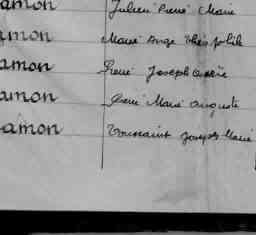 amon Julien Pierre Marie
amon Marie Ange Théophile
amon Pierre Joseph Marie
amon Pierre Marie Auguste
amon Toussaint Joseph Marie